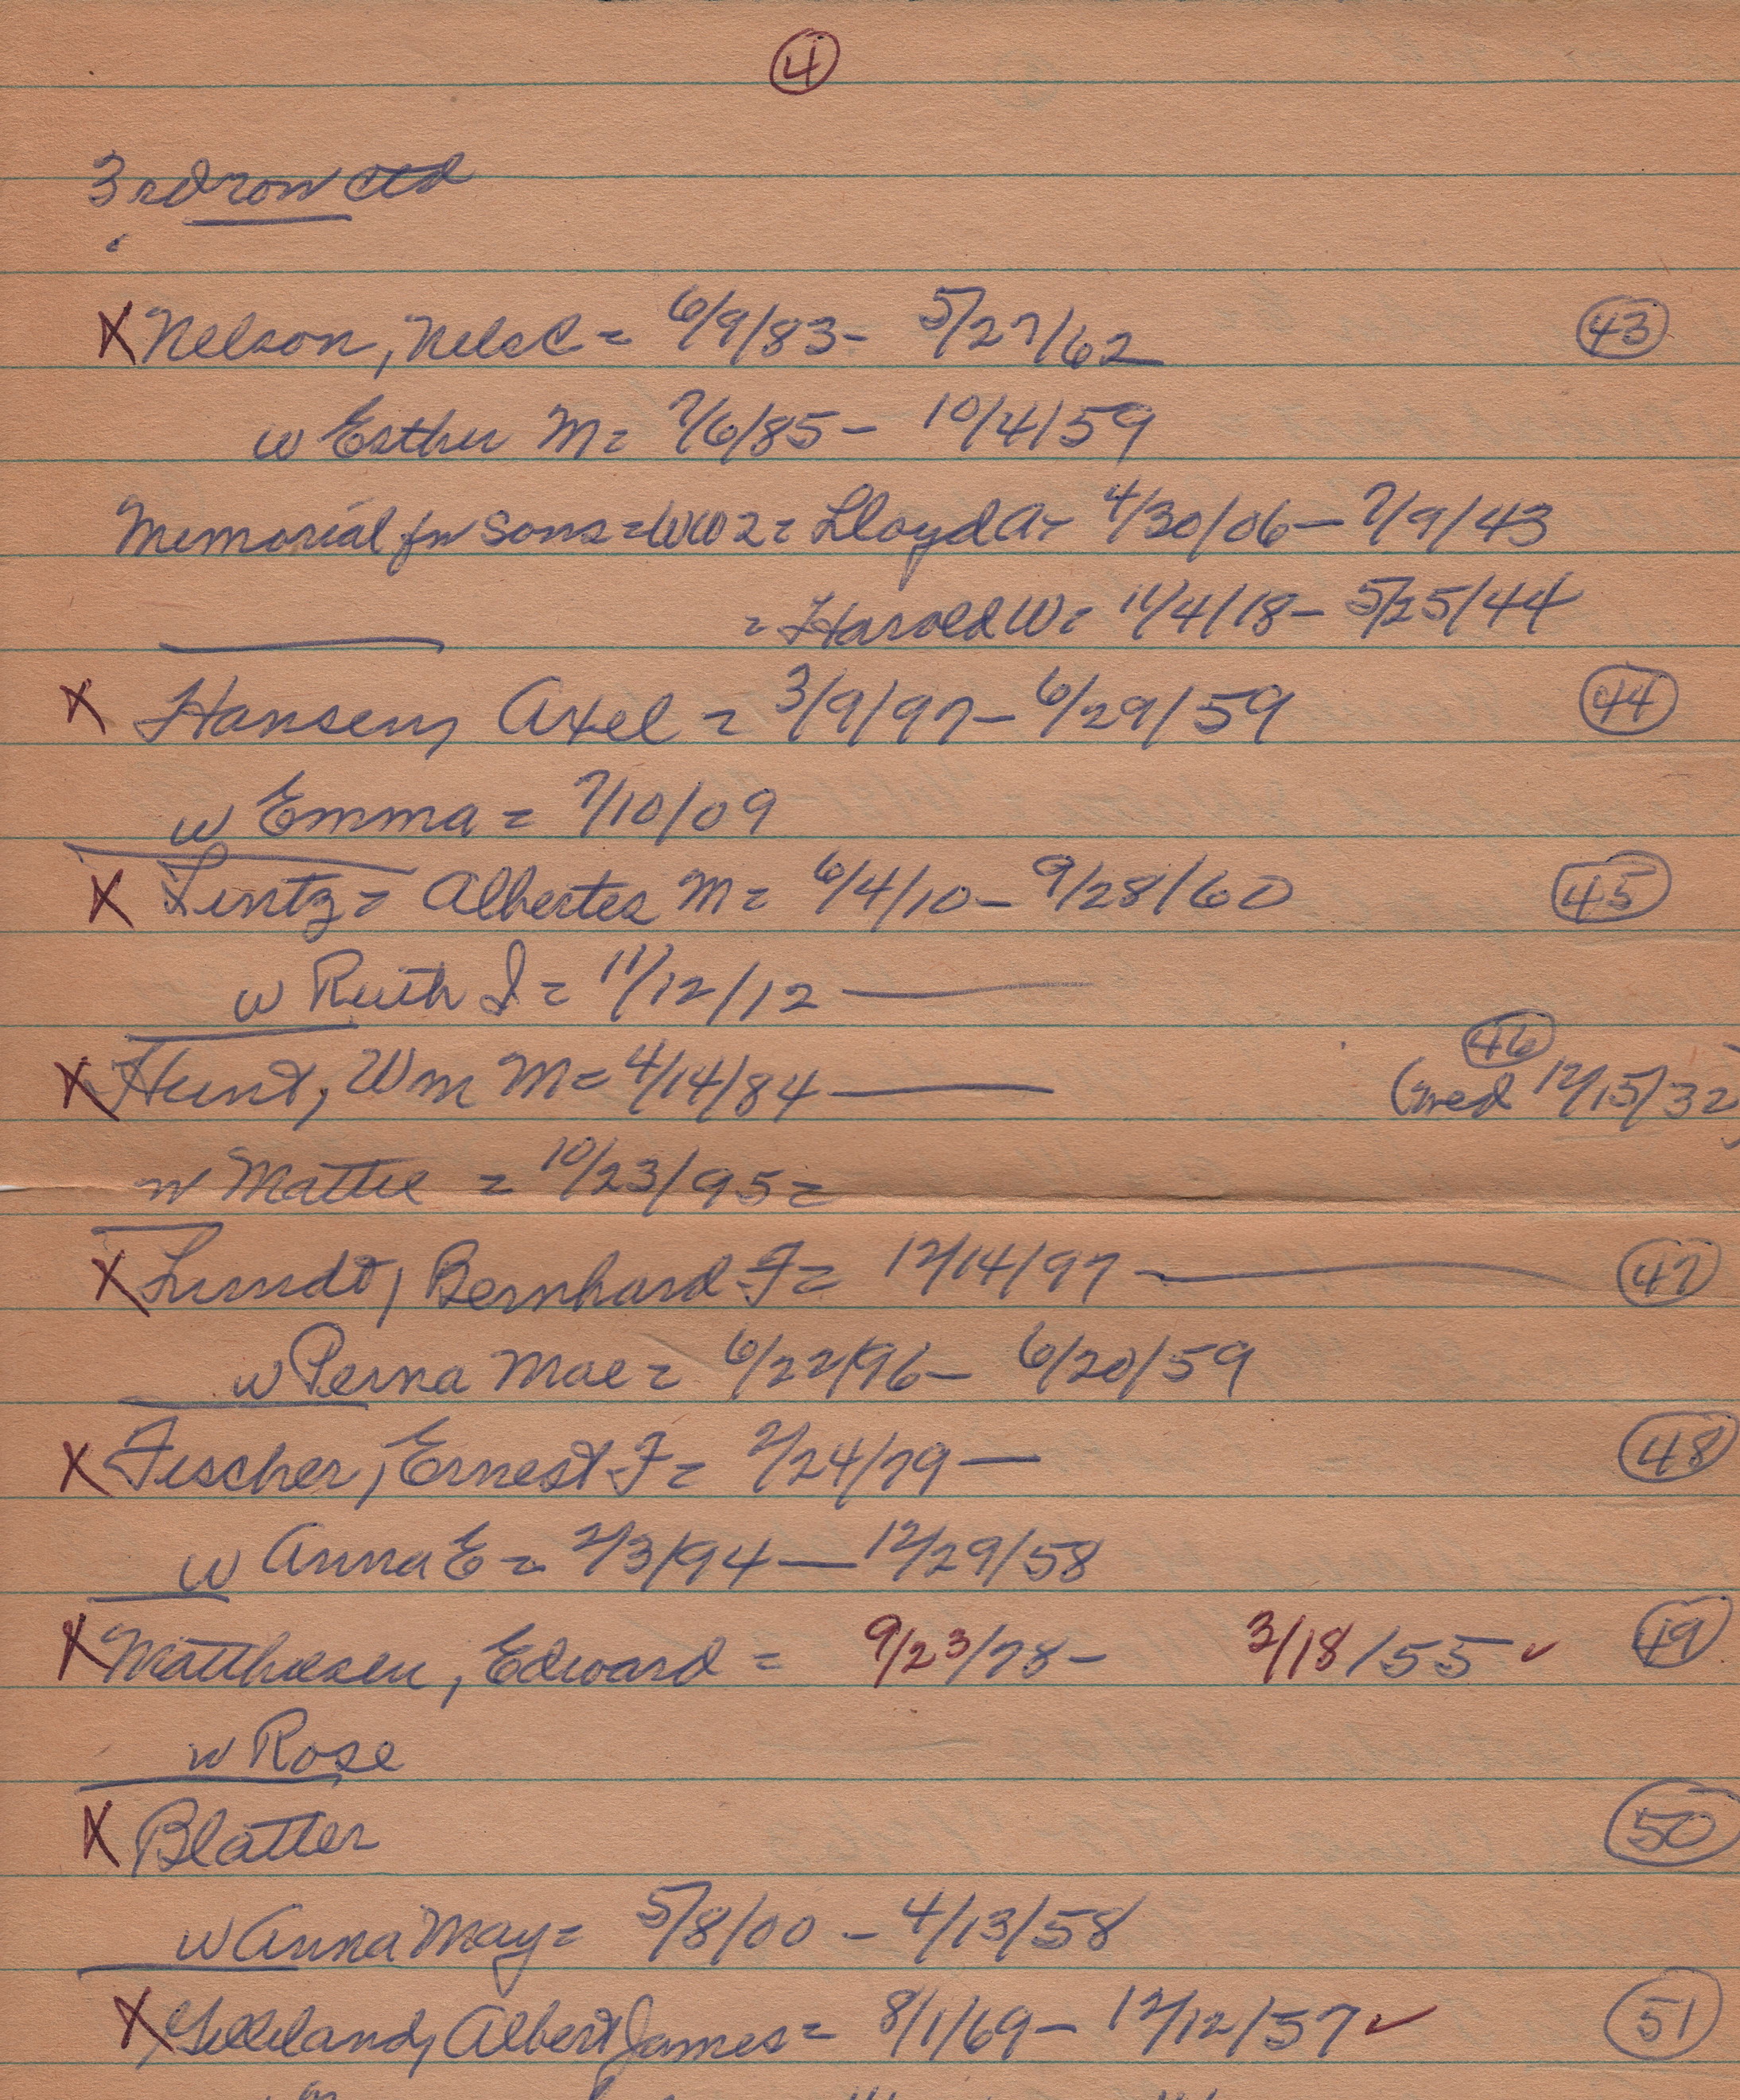 4
3rd row ctd
X Nelson, Nels C = 6/9/83 - 5/27/62 43
w Esther M = 7/6/85 - 10/4/59
Memorial for sons = WW2 = Lloyd A = 4/30/06 - 7/9/43
= Harold W = 11/4/18 - 5/25/44
X Hansen, Axel = 3/9/97 - 6/29/59 44
w Emma = 7/10/09
X Lintz = Albertes M = 6/4/10 - 9/28/60 45
w Ruth I = 11/12/12 —
46
X Hunt, Wm M = 4/14/84 — (wed 12/15/32)
w Mattie = 10/23/95 =
X Lundt, Bernhard F = 12/14/97 — 47
w Perna Mae = 6/22/96 - 6/20/59
X Fischer, Ernest F = 2/24/79 — 48
w Anna E = 2/3/94 — 12/29/58
X Matthiesen, Edward = 9/23/78 - 3/18/55 ✓ 49
w Rose
X Blatter 50
w Anna May = 5/8/00 - 4/13/58
X Gilleland, Albert James = 8/1/69 - 12/12/57 ✓ 51